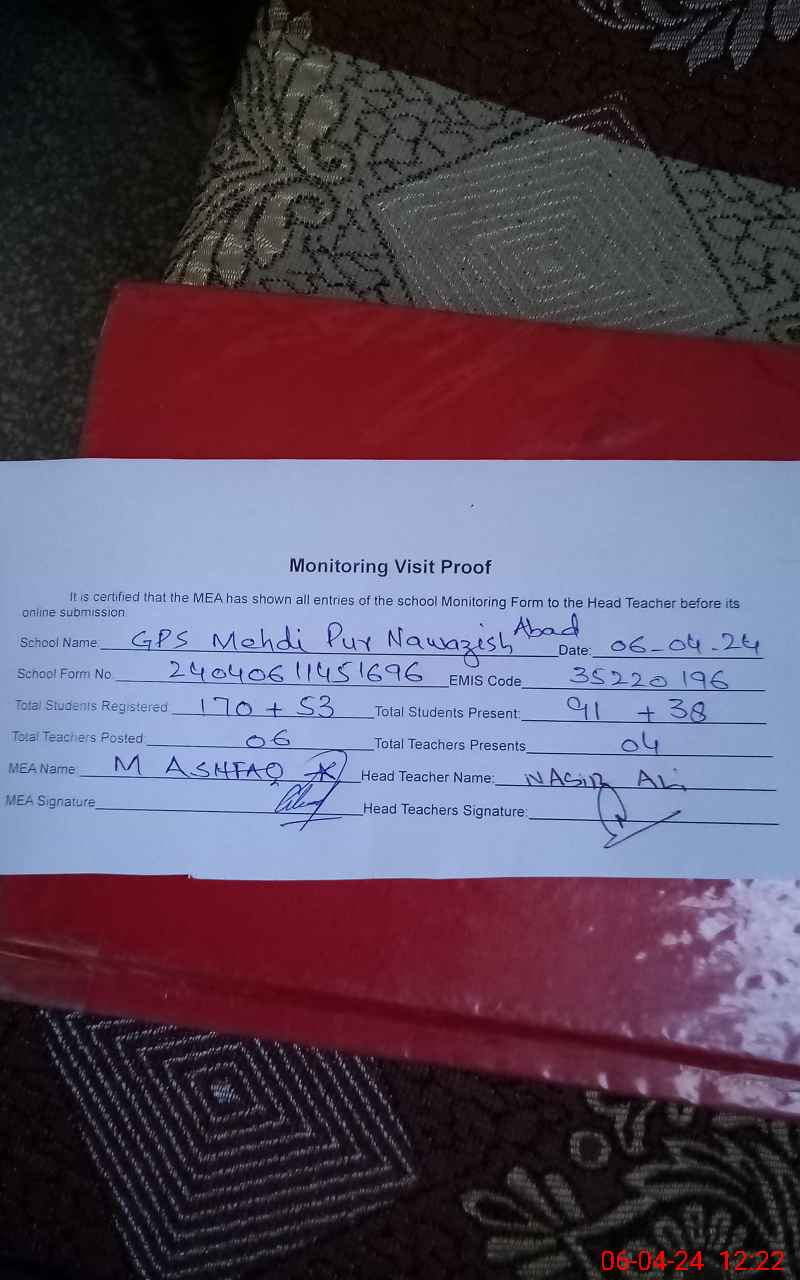 Monitoring Visit Proof
It is certified that the MEA has shown all entries of the school Monitoring Form to the Head Teacher before its
online submission
School Name: GPS Mehdi Pur Nawazish Abad Date: 06-04-24
School Form No. 24040611451696 EMIS Code 35220196
Total Students Registered 170 + 53 Total Students Present: 91 + 38
Total Teachers Posted: 06 Total Teachers Presents 04
MEA Name M ASHFAQ Head Teacher Name: NASIR ALi
MEA Signature Head Teachers Signature:
06-04-24 12:22